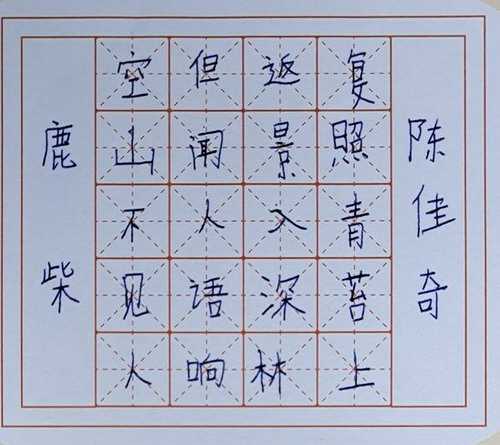 鹿柴
空山不见人
但闻人语响
返景入深林
复照青苔上
陈佳奇